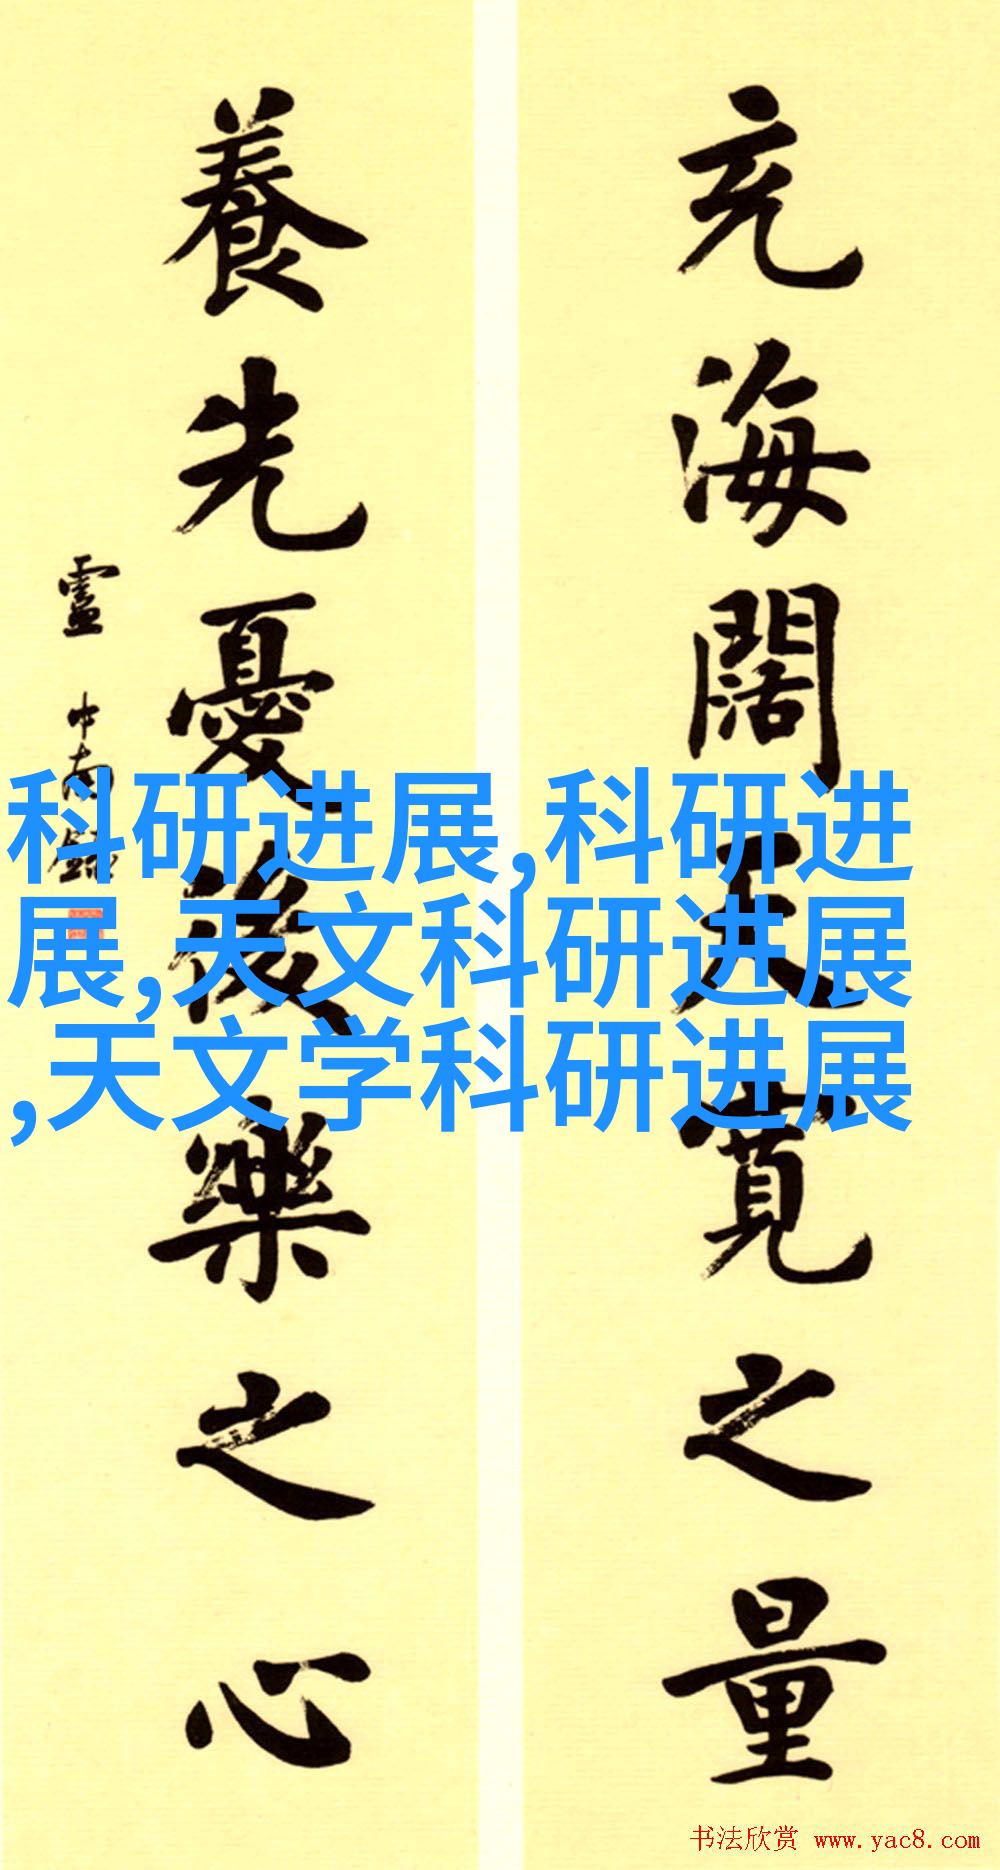 充海闊天寬之量
養先憂後樂之心
盧中南錄
科研进展,科研进
展,天文科研进展
,天文学科研进展
书法欣赏 www.yac8.com